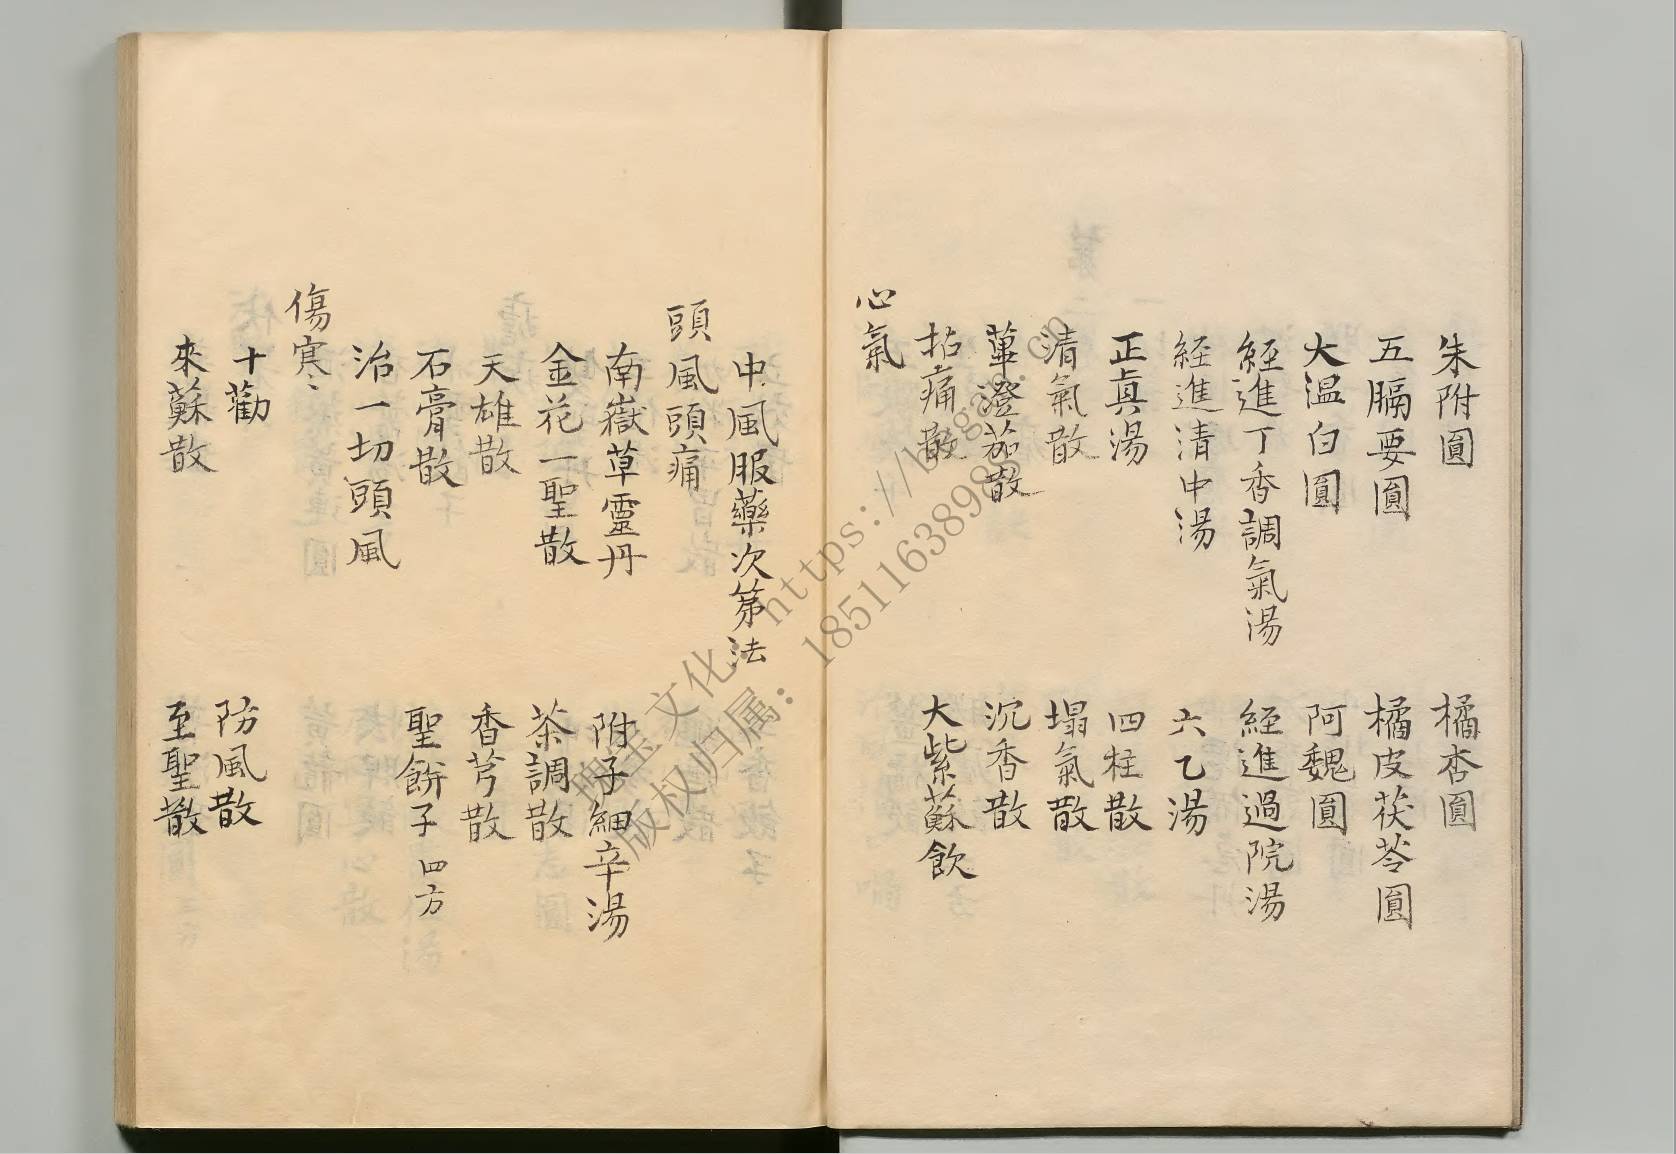 朱附圓　橘杏圓
五膈要圓　橘皮茯苓圓
大温白圓　阿魏圓
経進丁香調氣湯　経進過院湯
経進清中湯　六乙湯
正眞湯　四柱散
清氣散　塌氣散
蓽澄茄散　沉香散
拈痛散　大紫蘇飲
心氣
中風服藥次第法
頭風頭痛
南嶽草靈丹　附子細辛湯
金花一聖散　茶調散
天雄散　香芎散
石膏散　聖餅子 四方
治一切頭風
傷寒〻
十勸　防風散
來蘇散　至聖散
文化 https://bgaa.cn
版权归属: 18511638989